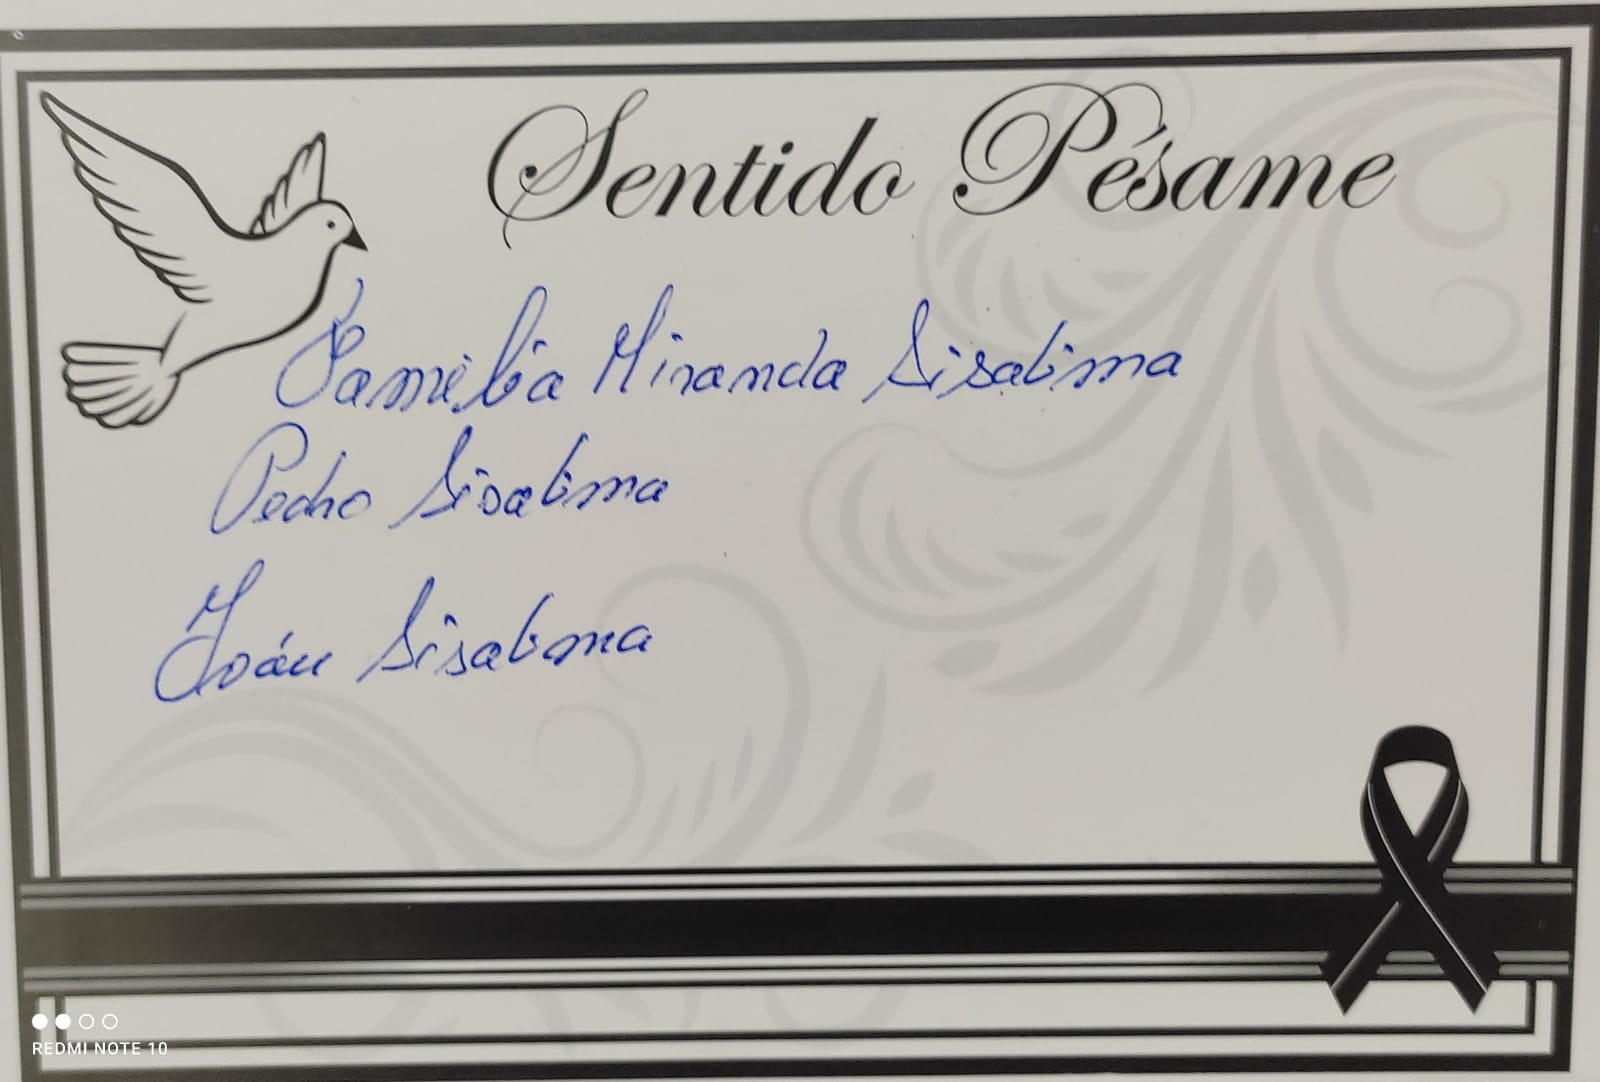 Sentido Pésame
Familia Miranda Sisalima
Pedro Sisalima
Iván Sisalima
REDMI NOTE 10